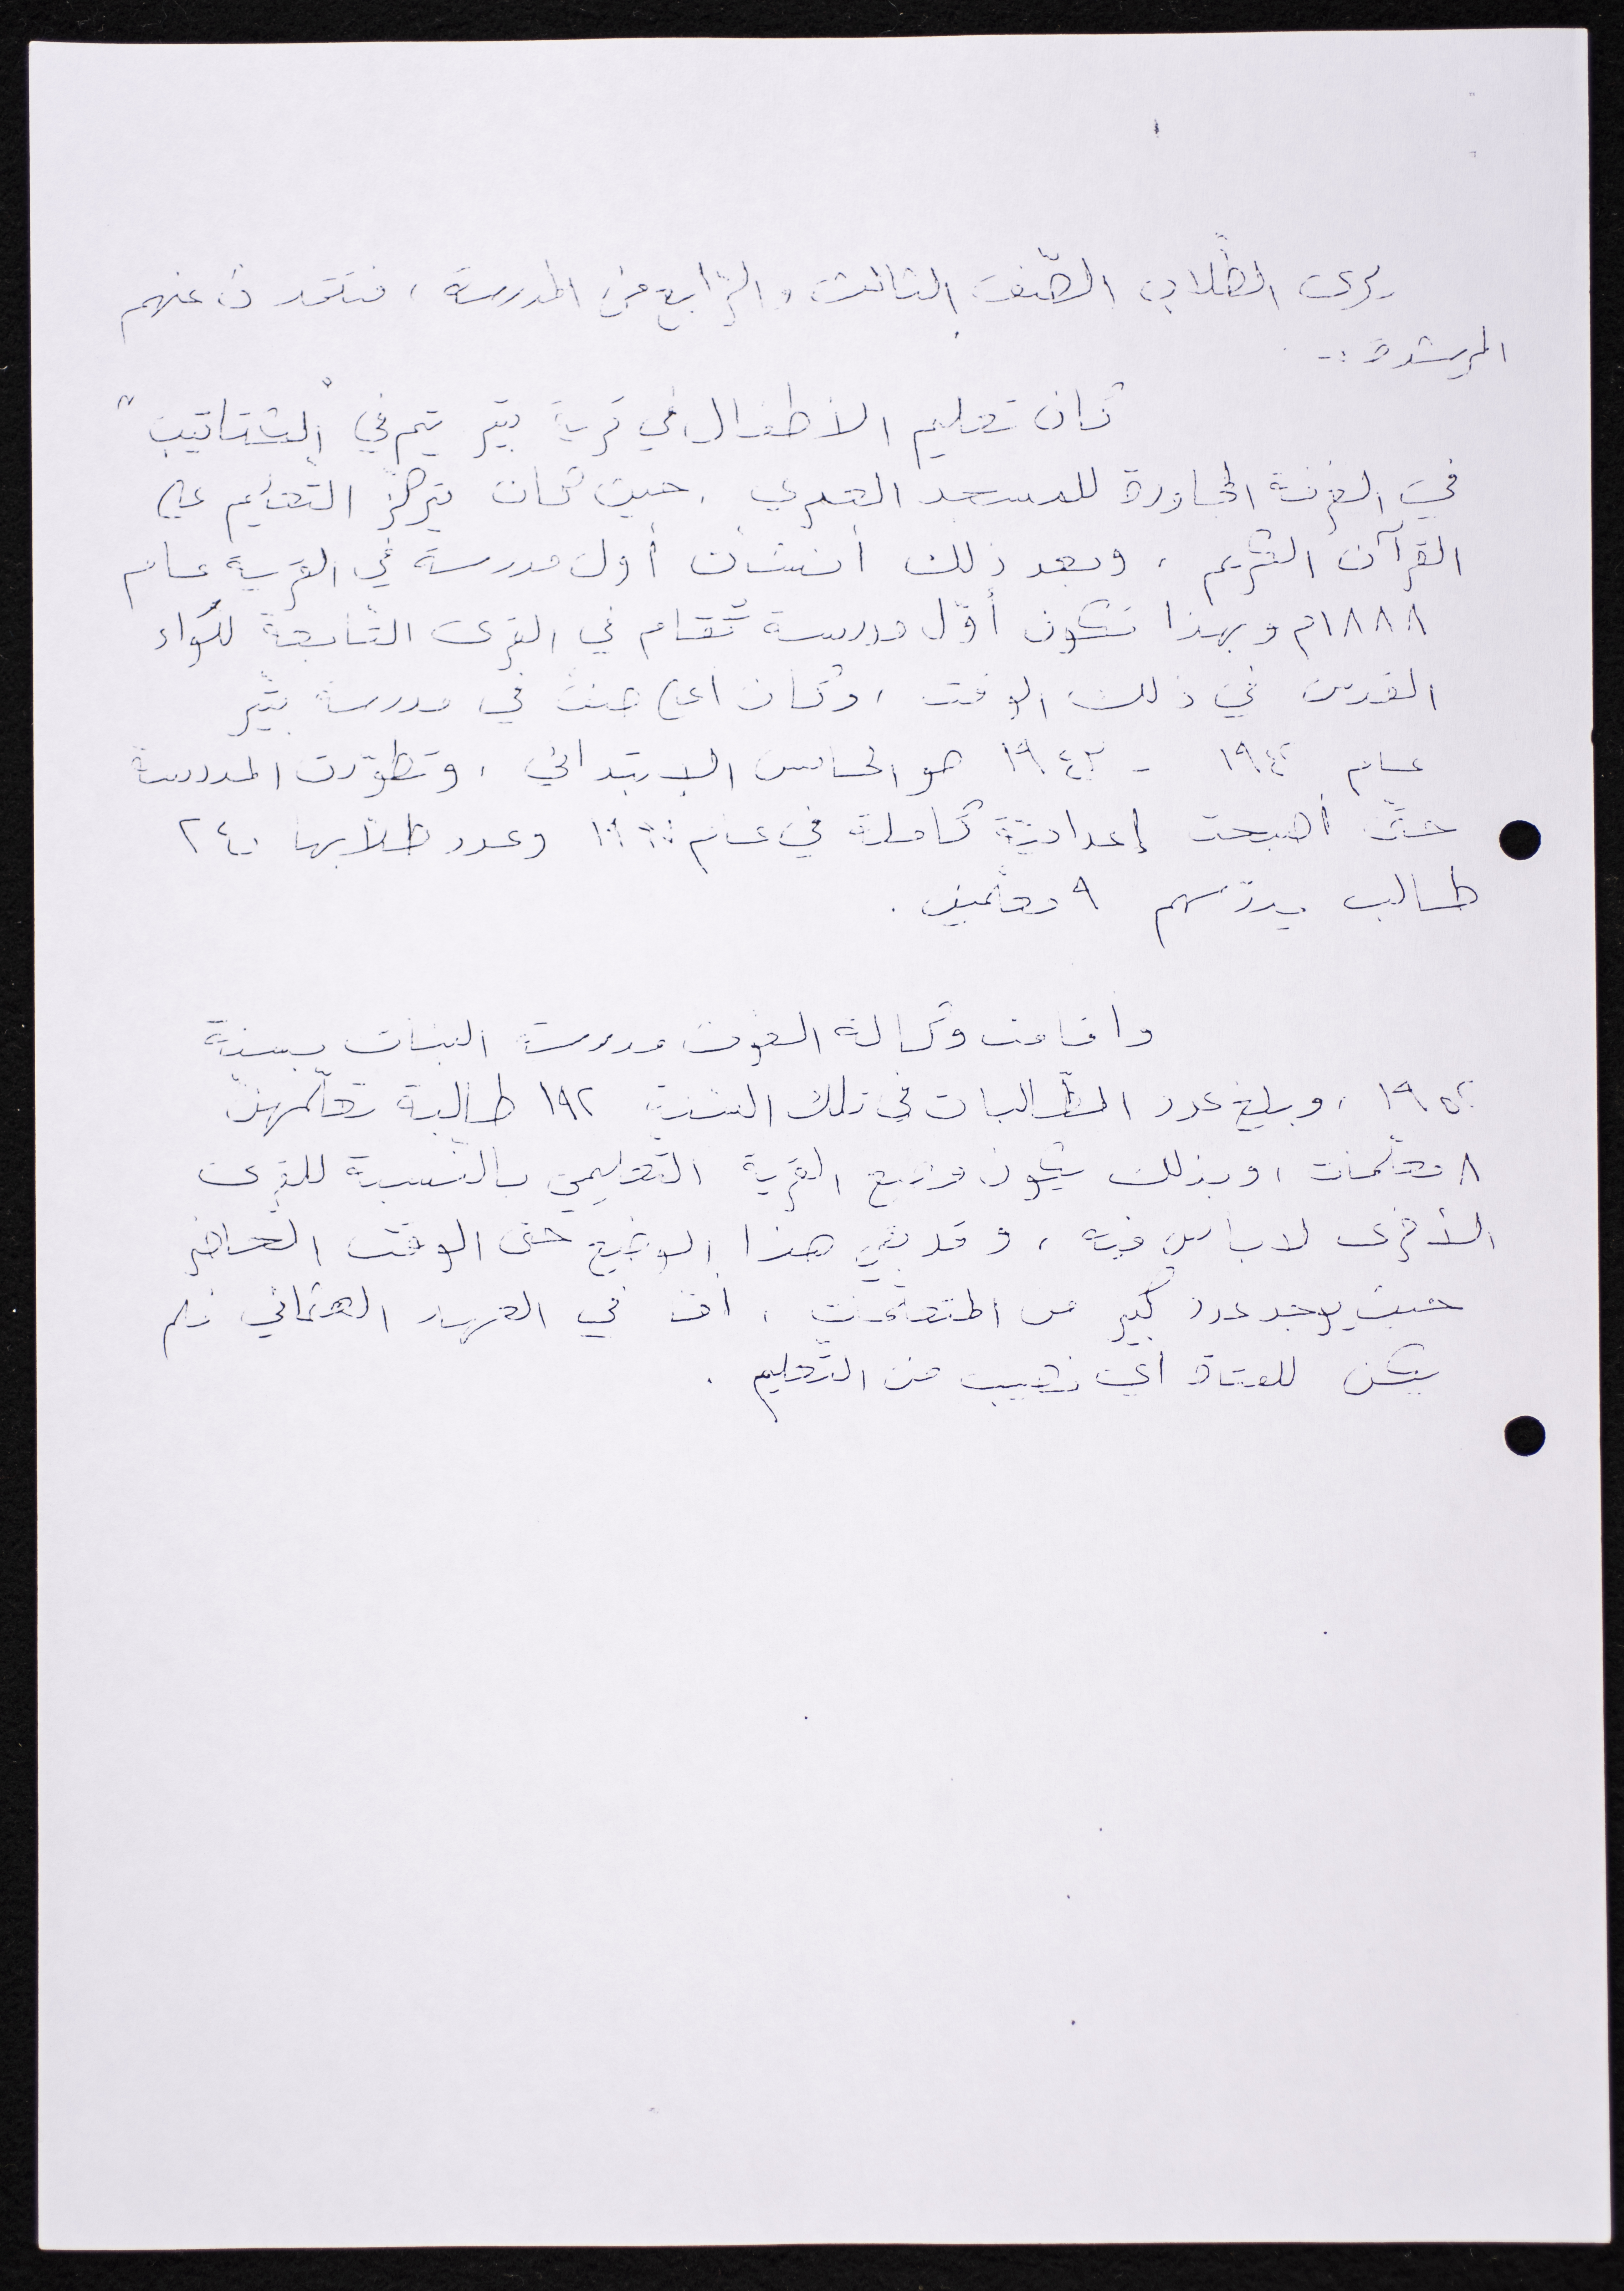 يرى الطّلاب الصّف الثالث والرّابع من المدرسة، فتتحدث عنهم
المرشدة :-
كان تعليم الأطفال في قرية بتير يتم في "الكتاتيب"
في الغرفة المجاورة للمسجد العمري. حيث كان يتركّز التّعليم على
القرآن الكريم، وبعد ذلك أنشأت أول مدرسة في القرية عام
١٨٨٨م وبهذا تكون أوّل مدرسة تُقام في القرى التّابعة للواء
القدس في ذلك الوقت، وكان اعلى صف في مدرسة بتّير
عام ١٩٤٢ - ١٩٤٣ هو الخامس الابتدائي، وتطوّرت المدرسة
حتّى أصبحت إعداديّة كاملة في عام وعدد طلّابها ٢٤٠
طالب يدرّسهم ٩ معلّمين.
وأقامت وكالة الغوث مدرسة البنات بسنة
١٩٥٢، وبلغ عدد الطّالبات في تلك السّنة ١٩٢ طالبة تعلّمهنّ
٨ معلّمات، وبذلك يكون وضع القرية التّعليمي بالنّسبة للقرى
الأخرى لا بأس فيه، وقد بقي هذا الوضع حتى الوقت الحاضر
حيث يوجد عدد كبير من المتعلّمين، أمّا في العهد العثماني فلم
يكن للفتاة أي نصيب من التّعليم.